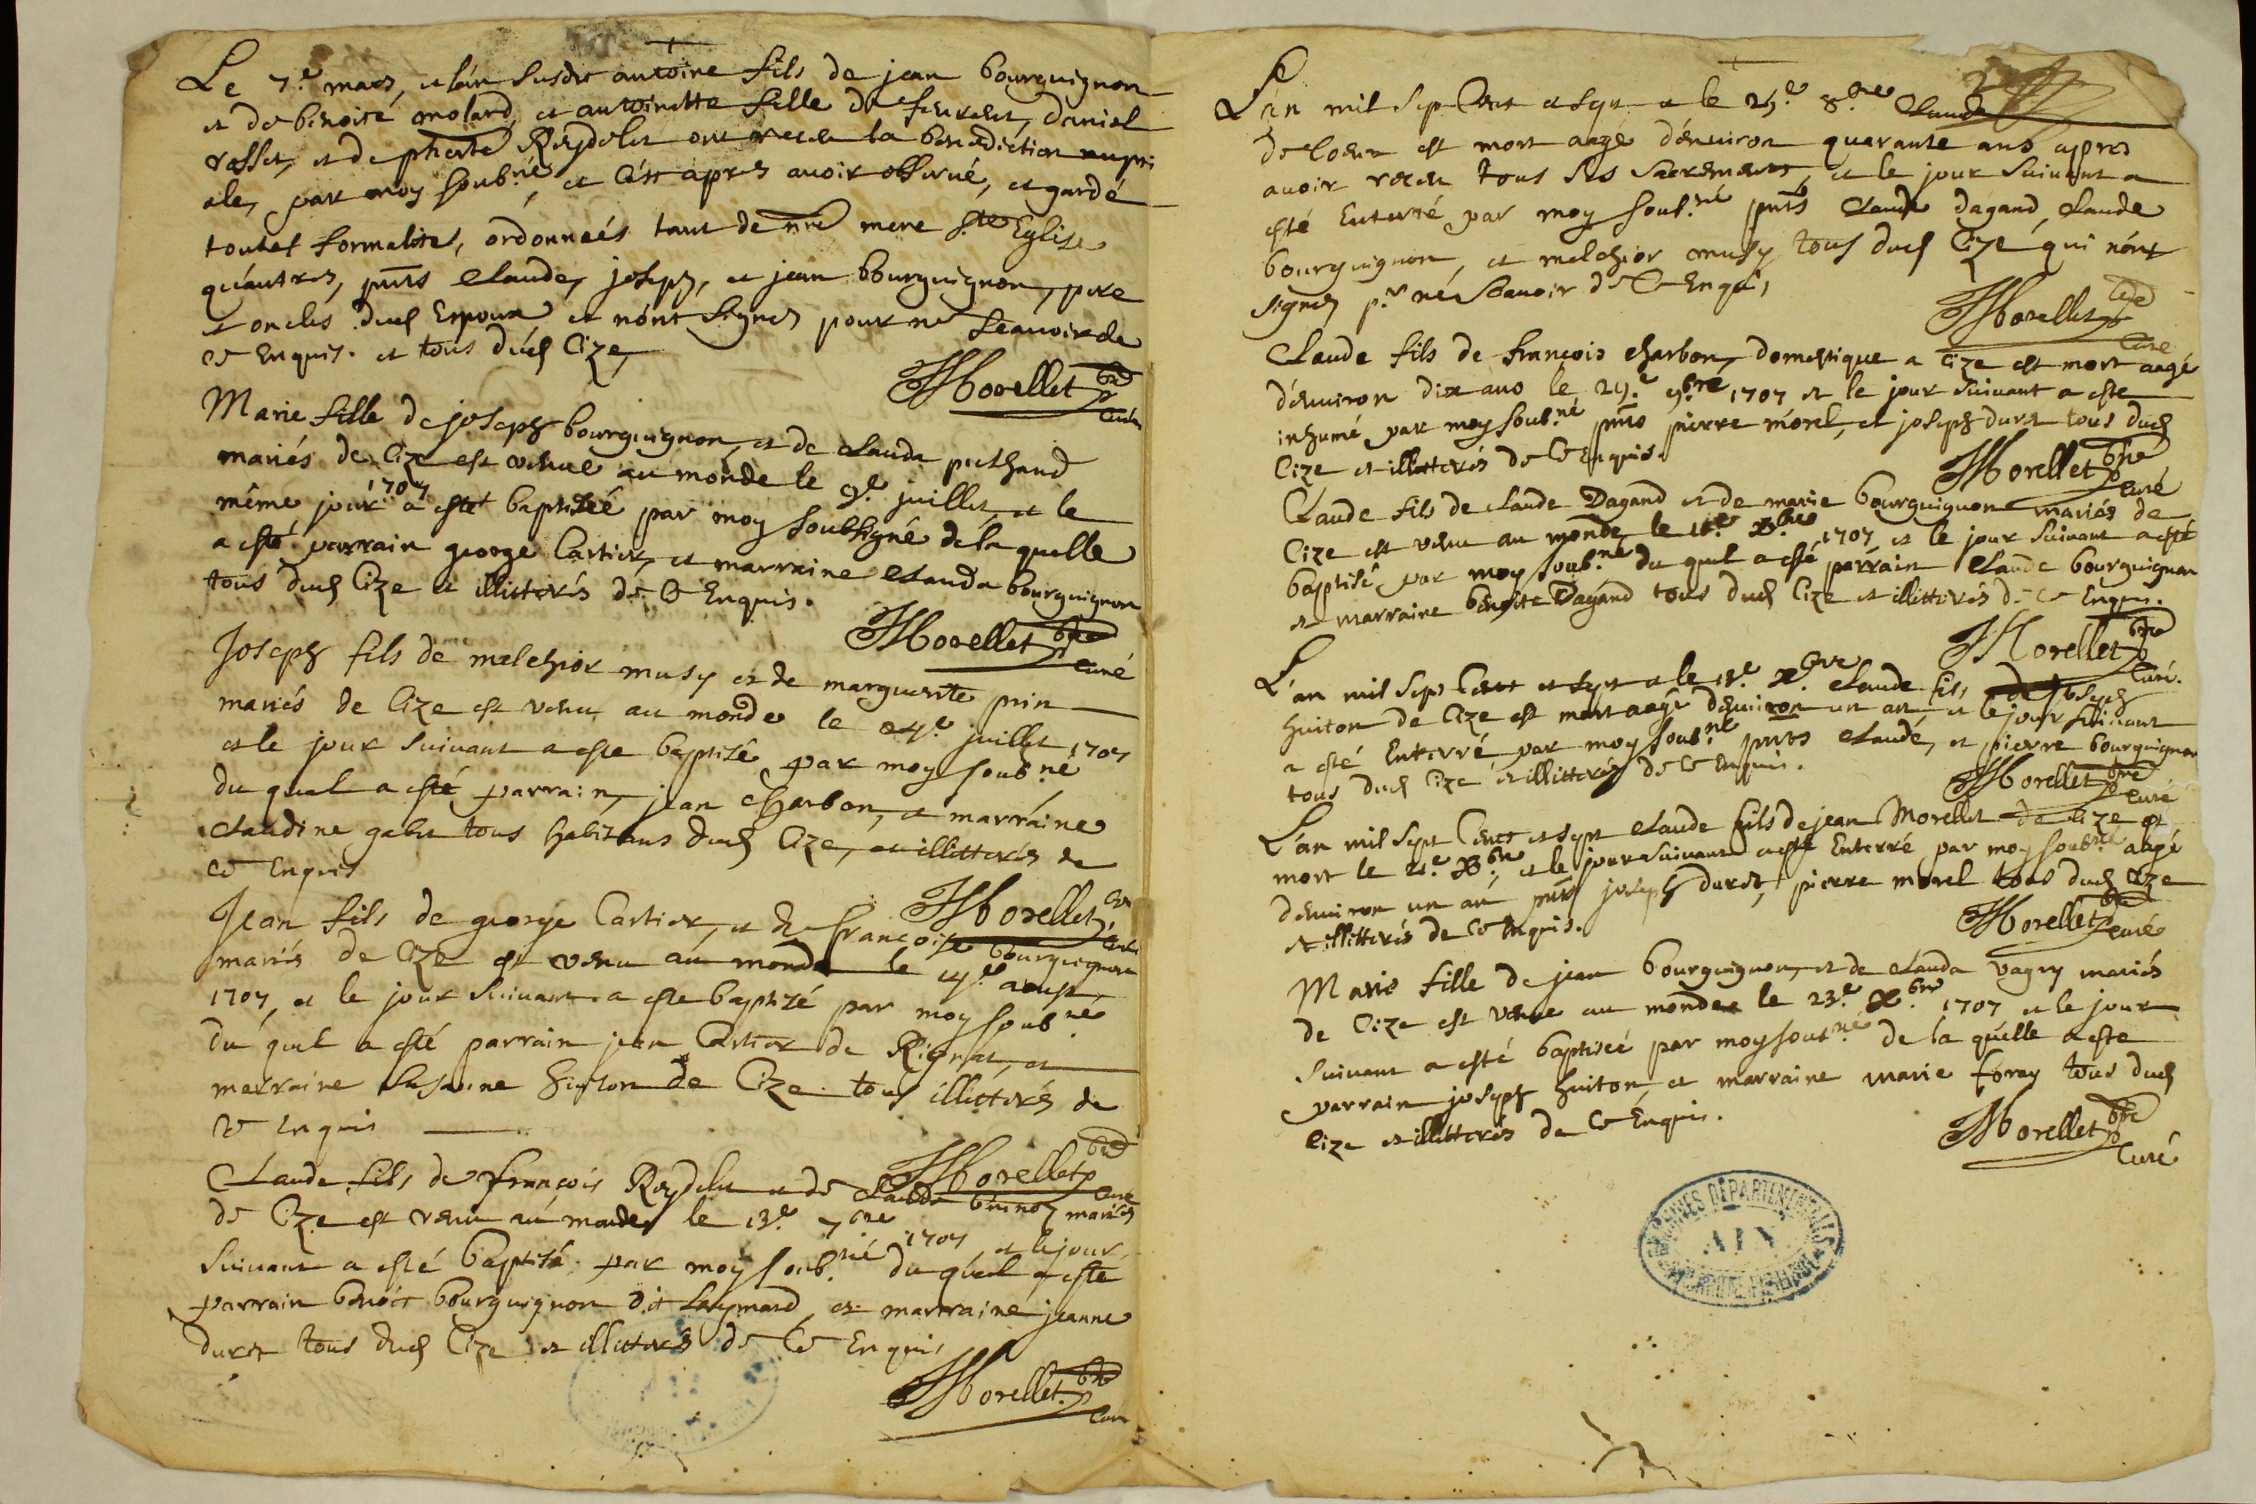 Le 7.e mars, et l'an susdit antoine fils de jean bourguignon
et de benoite molard, et antoinette fille de feu daniel
rosset, et de pherte Reydelet ont receu la benediction nupti
ale, par moy soub.né, et c'est apres avoir observé, et gardé
toutes formalites, ordonneés tant de nre mere ste Eglise
qu'autres, pnts claude, joseph, et jean bourguignon, pere
et oncles dud Epoux et n'ont signez pour ne sçavoir de
ce Enquis. et tous dud Cize,
JMorellet bre
Curé
Marie fille de joseph bourguignon, et de clauda puthaud
mariés de Cize est venue au monde le 9.e juillet, et le
même jour 1707 a esté baptizeé par moy soubsigné de la quelle
a esté parrain george Cartier, et marraine clauda bourguignon
tous dud Cize et illitterés de ce Enquis.
JMorellet bre
Curé
Joseph fils de melchior musy et de marguerite prin
mariés de Cize est venu au monde le juillet 1707
et le jour suivant a este baptisé par moy soub.né
du quel a esté parrain, jean charbon, et marraine
claudine gabet tous habitans dud Cize, et illitterés de
ce Enquis
JMorellet bre
Curé
Jean fils de george Cartier, et de françoise bourguignon
mariés de Cize est venu au monde le aoust,
1707, et le jour suivant a este baptizé par moy soub.né
du quel a esté parrain jean Cartier de Rignat, et
merraine susanne huiton de Cize tous illitterés de
ce Enquis
JMorellet bre
Curé
Claude fils de françois Reydelet et de Clauda mariés
de Cize est venu au monde le 13.e 7bre 1707 et le jour
suivant a esté baptisé par moy soub.né du quel a esté
parrain benoit bourguignon dit Laymard, et marraine jeanne
duret tous dud Cize et illitterés de ce Enquis
JMorellet bre
Curé
L'an mil sept Cent et sept et le 8.bre Claude
de loeur est mort aagé d'énviron quarante ans apres
avoir receu tous ses sacrements, et le jour suivant a
esté Enterré par moy soub.né pnts claude dagand, claude
bourguignon, et melchior musy tous dud Cize qui n'ont
signez p.r ne scavoir de ce Enquis
JMorellet bre
Curé
Claude fils de françois charbon, domestique a Cize est mort aagé
d'énviron dix ans le 29.e 9.bre 1707 et le jour suivant a este
inhumé par moy soub.né pnts pierre morel, et joseph duret tous dud
Cize et illitterés de ce Enquis.
JMorellet bre
Curé
Claude fils de claude Dagand et de marie bourguignon mariés de
Cize est venu au monde le X.bre 1707, et le jour suivant a esté
baptisé par moy soub.né du quel a esté parrain claude bourguignon
et marraine benoite Dagand tous dud Cize et illitterés de ce Enquis.
JMorellet bre
Curé.
L'an mil sept Cent et sept et le X.bre claude fils de joseph
huiton de Cize est mort aagé d'énviron un an et le jour suivant
a esté Enterré par moy soub.né pnts claude, et pierre bourguignon
tous dud Cize et illitterés de ce Enquis.
JMorellet bre
Curé
L'an mil sept Cent et sept claude fils de jean Morellet de Cize est
mort le X.bre, et le jour suivant a esté Enterré par moy soub.né aagé
d'énviron un an, pnts joseph duret, pierre morel tous dud Cize
et illitterés de ce Enquis.
JMorellet bre
curé
Marie fille de jean bourguignon, et de clauda vagny mariés
de Cize est venue au monde le 23.e X.bre 1707 et le jour
suivant a esté baptiseé par moy soub.né de la quelle a este
parrain joseph huiton, et marraine marie foray tous dud
Cize et illitterés de ce Enquis.
JMorellet bre
Curé
ARCHIVES DÉPARTEMENTALES
AIN